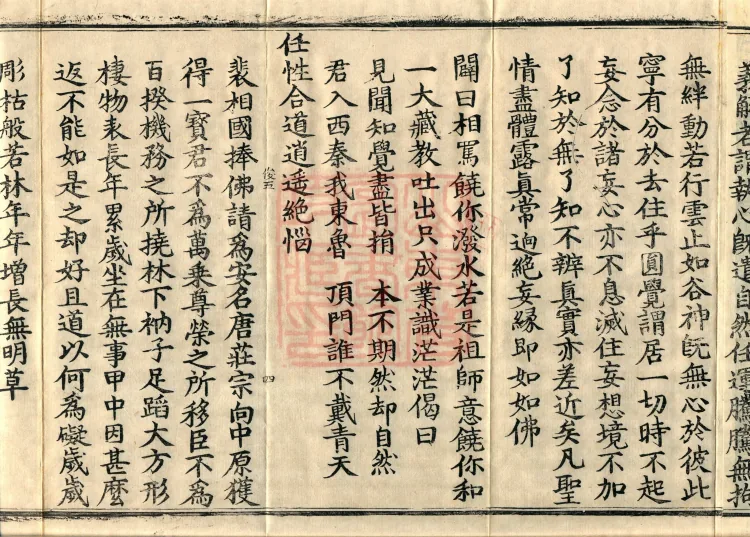 義解者謂執心旣遣自然任運騰騰無拘
無絆動若行雲止如谷神旣無心於彼此
寧有分於去住乎圓覺謂居一切時不起
妄念於諸妄心亦不息滅住妄想境不加
了知於無了知不辨眞實亦差近矣凡聖
情盡體露眞常逈絕妄緣即如如佛
闢曰相罵饒你潑水若是祖師意饒你和
一大藏教吐出只成業識茫茫偈曰
見聞知覺盡皆捐 本不期然却自然
君入西秦我東魯 頂門誰不戴青天
任性合道逍遥絕惱
裴相國捧佛請爲安名唐莊宗向中原獲
得一寶君不爲萬乗尊榮之所移臣不爲
百揆機務之所撓林下衲子足蹈大方形
棲物表長年累歲坐在無事甲中因甚麼
返不能如是之却好且道以何爲礙歲歲
彫枯般若林年年增長無明草
四